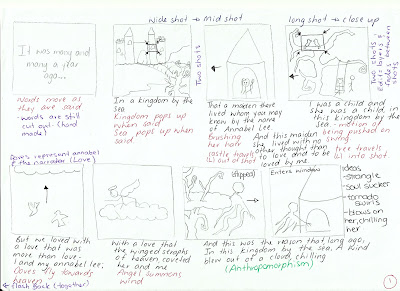 Wide shot → Mid shot
long shot → close up
It was many and
many a year
ago...
Two shots
Two shots,
fade between
shots
Words move as
they are said
- words are still
cut out (hard
mode)
In a kingdom by the
Sea
Kingdom pops up
when said
Sea pops up when
said.
That a maiden there
lived whom you may
know by the name
of Annabel Lee
Brushing
her hair
castle travels
(L) out of shot
And this maiden
she lived with no
other thought than
to love and to be
loved by me
I was a child and
she was a child in
this kingdom by the
Sea
- motion of
being pushed on
swing
tree travels
(L) into shot
Doves represent annabel
& the narrator (Love)
But we loved with
a love that was
more than love-
I and my annabel lee;
Doves fly towards
heaven
← Flash Back (together)
With a love that
the winged seraphs
of heaven, coveted
her and me
Angel summons
wind
(flipped)
Enters window
ideas
- strangle
- soul sucker
- tornado
swirls
- focus on
her, chilling
her
And this was the reason that, long ago,
In this kingdom by the sea, A wind
blew out of a cloud, chilling
(Anthropomorphism)
1